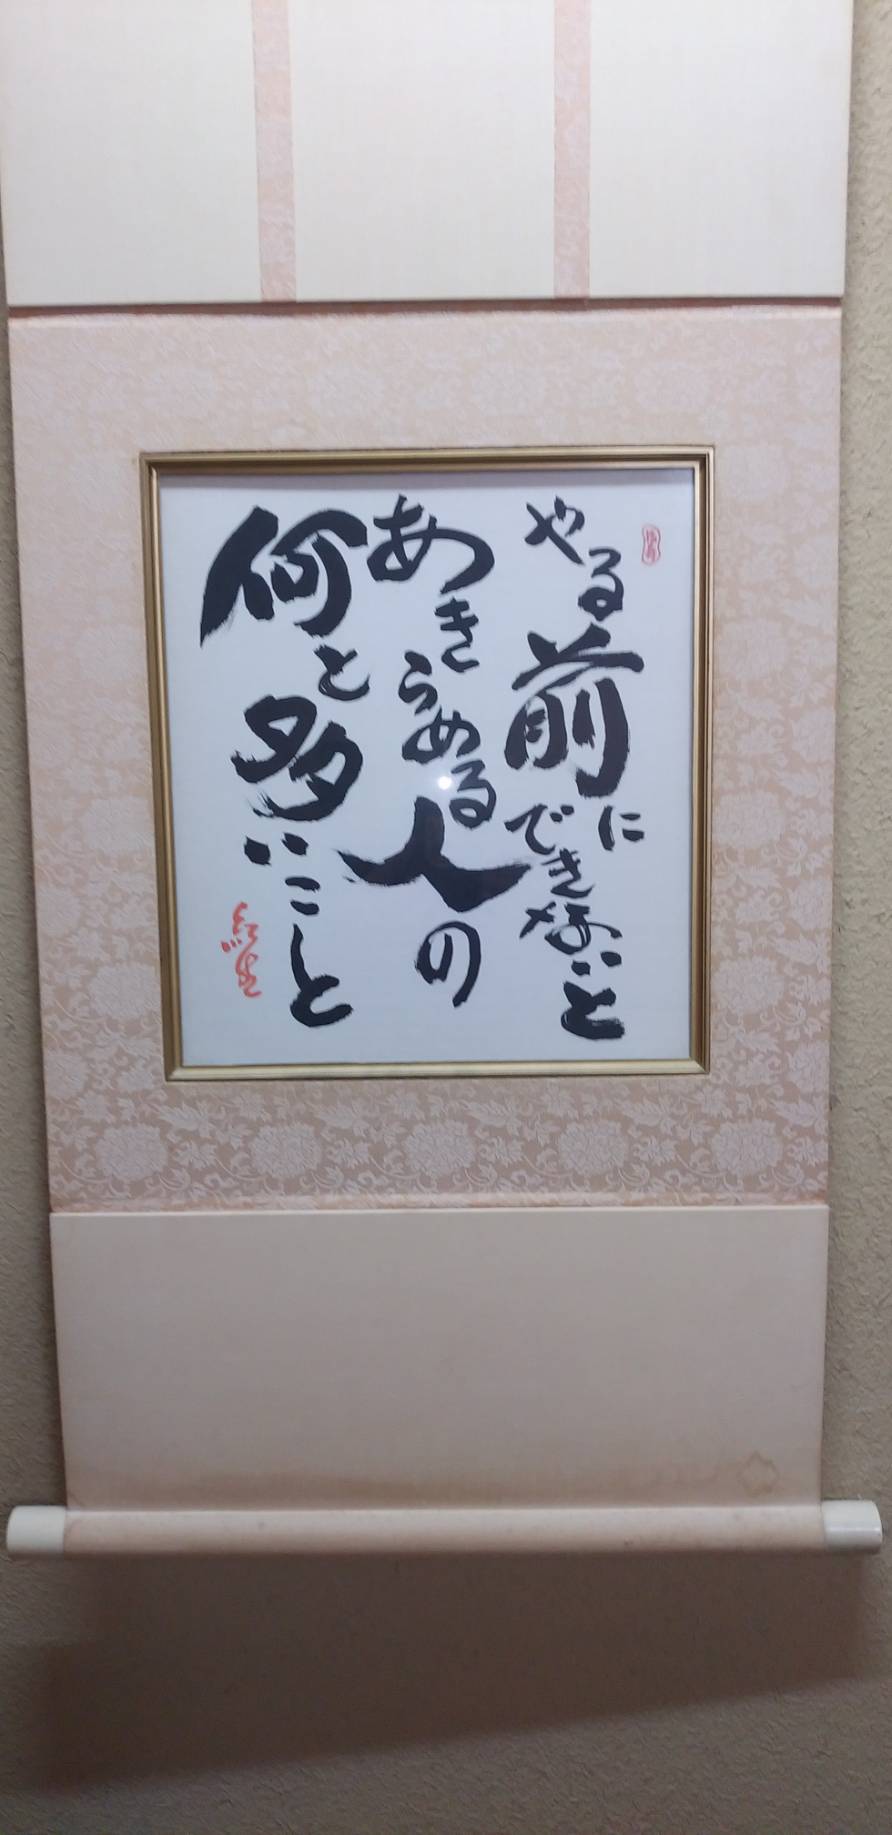 やる前にできないと
あきらめる人の
何と多いこと